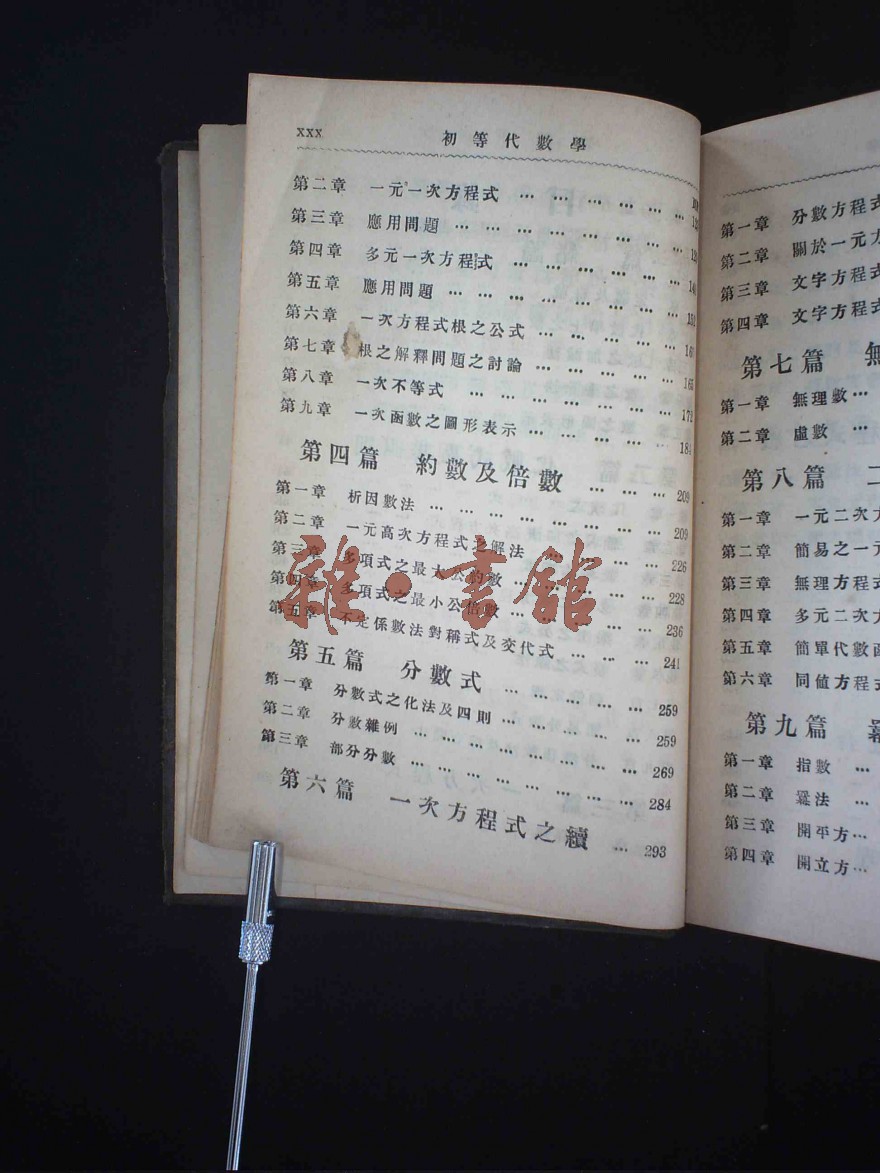 xxx 初等代數學
第二章 一元一次方程式 … … … … … …
第三章 應用問題 … … … … … … …
第四章 多元一次方程式 … … … … …
第五章 應用問題 … … … … … … …
第六章 一次方程式根之公式 … … … …
第七章 根之解釋問題之討論 … … … … 165
第八章 一次不等式 … … … … … … 172
第九章 一次函數之圖形表示 … … … … 184
第四篇 約數及倍數 … … … 209
第一章 析因數法 … … … … … … … 209
第二章 一元高次方程式之解法 … … … … 226
第三章 多項式之最大公約數 … … … … 228
第四章 多項式之最小公倍數 … … … … 236
第五章 不定係數法對稱式及交代式 … … … 241
第五篇 分數式 … … … … 259
第一章 分數式之化法及四則 … … … … 259
第二章 分數雜例 … … … … … … … 269
第三章 部分分數 … … … … … … … 284
第六篇 一次方程式之續 … 293
雜·書館
第一章 分數方程式
第二章 關於一元
第三章 文字方程式
第四章 文字方程
第七篇 無
第一章 無理數…
第二章 虛數 …
第八篇 二
第一章 一元二次
第二章 簡易之一元
第三章 無理方程式
第四章 多元二次
第五章 簡單代數函
第六章 同値方程式
第九篇
第一章 指數 …
第二章 羃法 …
第三章 開平方…
第四章 開立方…